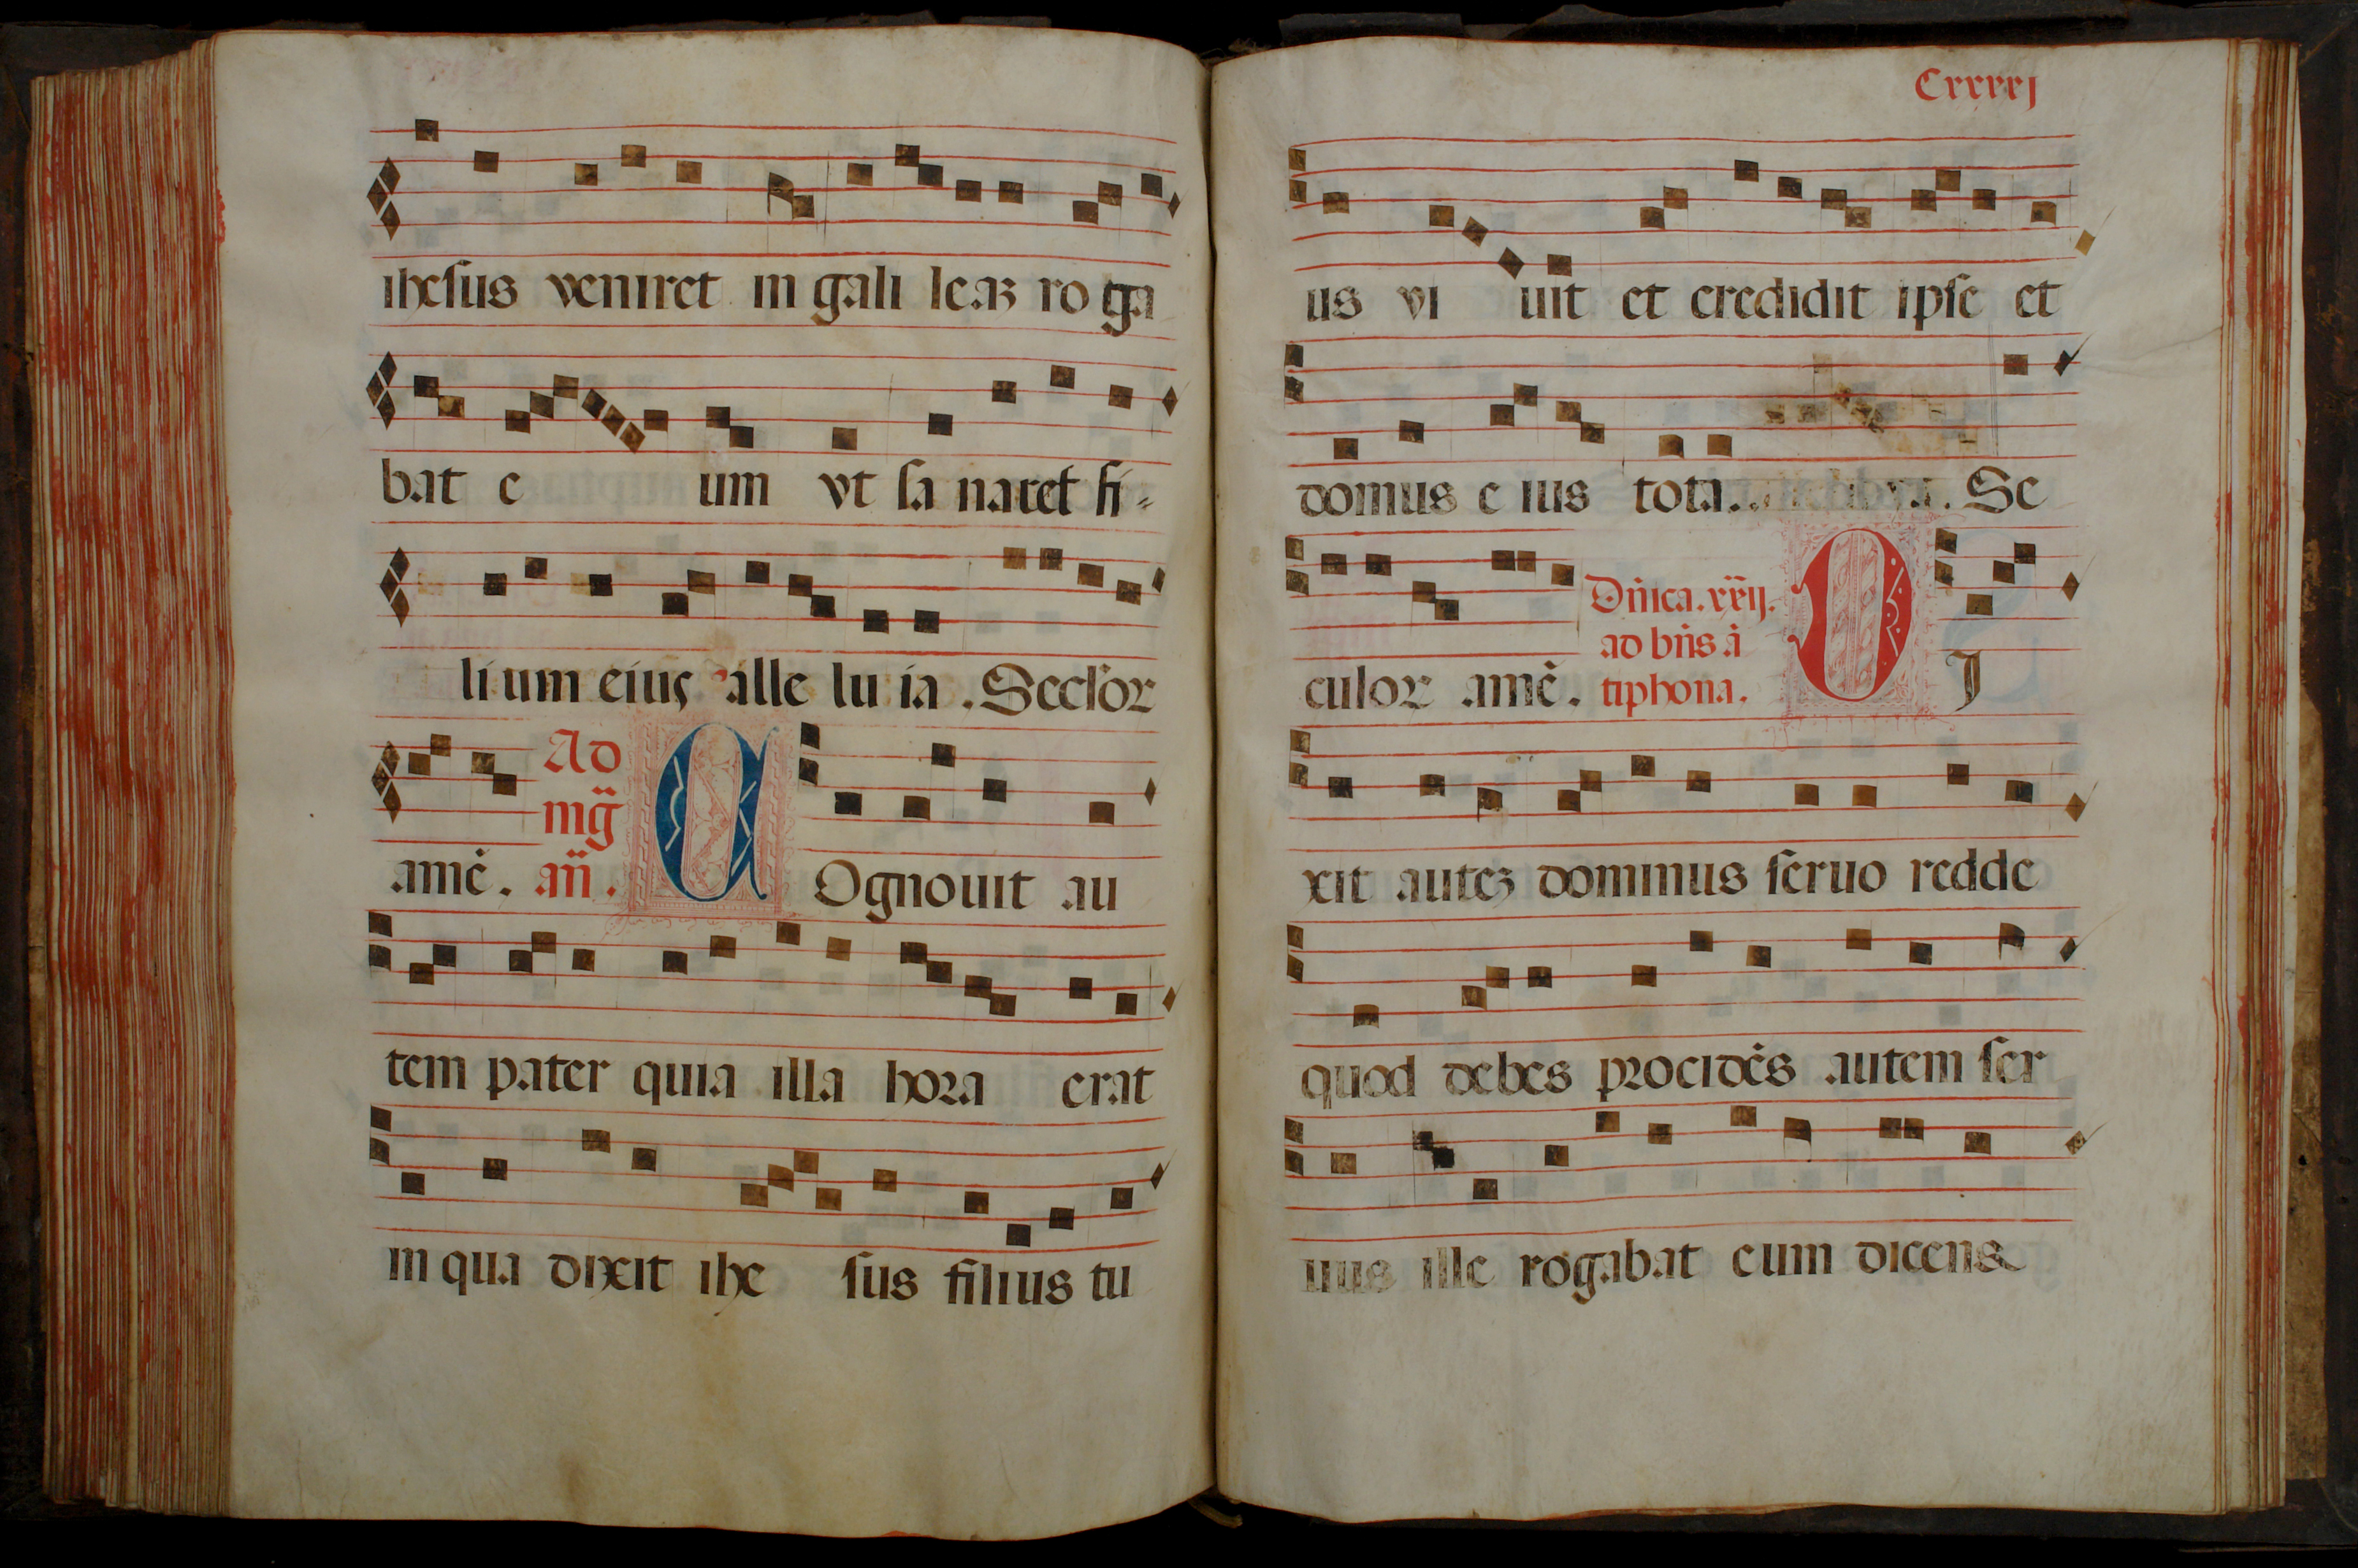 ihesus veniret in gali leaz ro ga
bat e um vt sa naret fi=
li um eius alle lu ia . Seclor
Ad
mg̃
amẽ. añ. C Ognouit au
tem pater quia illa hora erat
in qua dixit ihe sus filius tu
Cxxxxj
us vi uit et credidit ipse et
domus e ius tota. Se
Dñica. xxij.
ad bñs ã
culor amẽ. tiphona. D J
xit autez dominus seruo redde
quod debes procidẽs autem ser
uus ille rogabat eum dicens